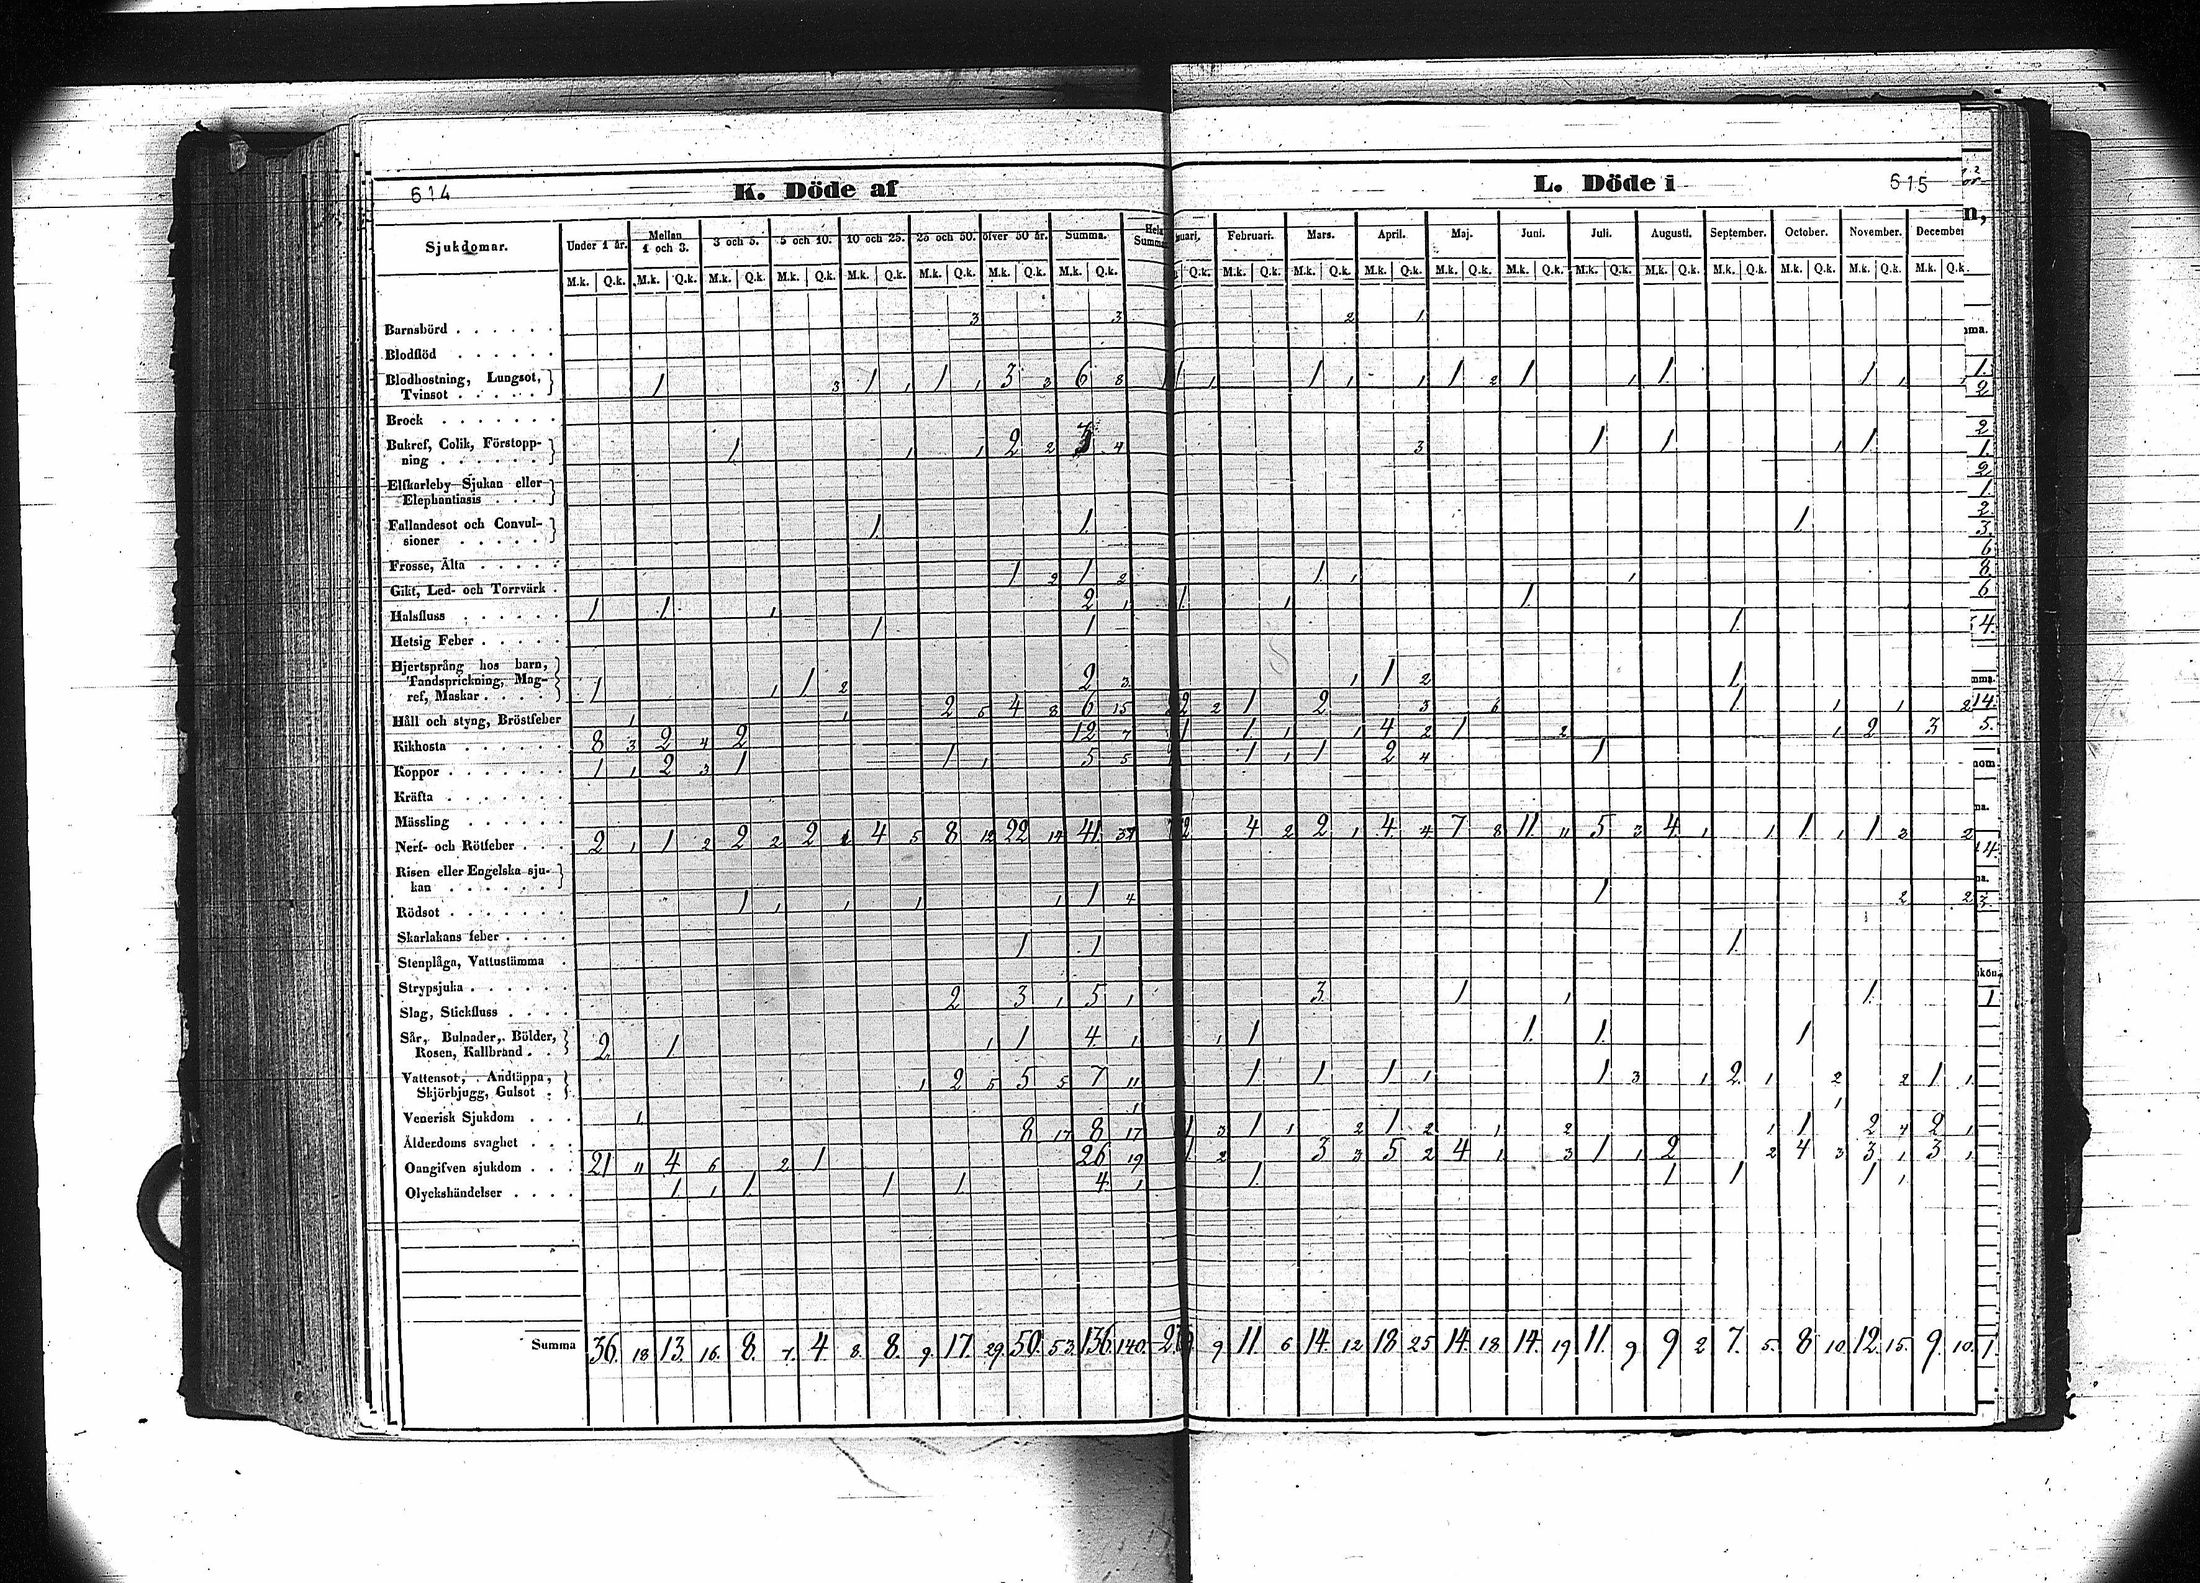 614 K. Döde af
Sjukdomar. Under 1 år. Mellan 1 och 3. 3 och 5. 5 och 10. 10 och 25. 25 och 50. öfver 50 år. Summa. Hela Summa
M.k. Q.k. M.k. Q.k. M.k. Q.k. M.k. Q.k. M.k. Q.k. M.k. Q.k. M.k. Q.k. M.k. Q.k.
Barnsbörd . . . . . . 3 3
Blodflöd . . . . . .
Blodhostning, Lungsot,
Tvinsot . . . . . 1 3 1 1 1 1 3 3 6 8
Brock . . . . . . .
Bukref, Colik, Förstopp-
ning . . . . . . 1 1 1 2 2 3 4
Elfkarleby-Sjukan eller
Elephantiasis . . .
Fallandesot och Convul-
sioner . . . . . 1. 1.
Frosse, Älta . . . . .
Gikt, Led- och Torrvärk . 1 2 1 2
Halsfluss . . . . . 1 1. 1 2 1
Hetsig Feber . . . . . 1 1
Hjertsprång hos barn,
Tandsprickning, Mag-
ref, Maskar . . . . 1 1 1 2 2 3
Håll och styng, Bröstfeber 1 1 2 5 4 8 6 15
Kikhosta . . . . . . 8 3 2 4 2 12 7
Koppor . . . . . . . 1 1 2 3 1 1 1 5 5
Kräfta . . . . . . .
Mässling . . . . . .
Nerf- och Rötfeber . . . 2 1 1 2 2 2 2 4 5 8 12 22 14 41.
Risen eller Engelska sju-
kan . . . . . .
Rödsot . . . . . . . 1 1 1 1 1 1 4
Skarlakans feber . . . .
Stenplåga, Vattustämma . 1 1
Strypsjuka . . . . . .
Slag, Stickfluss . . . . 2 3 1 5 1
Sår, Bulnader, Bölder,
Rosen, Kallbrand . . 2 1 1 1 4 1
Vattensot, Andtäppa,
Skjörbjugg, Gulsot . 1 2 5 5 5 7 11
Venerisk Sjukdom . . . 1 1
Ålderdoms svaghet . . . 8 17 8 17
Oangifven sjukdom . . . 21 11 4 6 2 1 26 19
Olyckshändelser . . . . 1 1 1 1 1 4 1
Summa 36. 18 13. 16. 8. 7. 4 8. 8. 9. 17. 29. 50. 53. 136. 140.
L. Döde i 615
Februari. Mars. April. Maj. Juni. Juli. Augusti. September. October. November. December
Q.k. M.k. Q.k. M.k. Q.k. M.k. Q.k. M.k. Q.k. M.k. Q.k. M.k. Q.k. M.k. Q.k. M.k. Q.k. M.k. Q.k. M.k. Q.k. M.k. Q.k.
2 1
1 1 1 1 1 1 2 1 1 1. 1 1 1
3 1 1 1 1
1.
1. 1 1
1. 1 1.
1.
1 1 2 1
2 2 1 2 3 6 1 1 1 2
1 1. 1 1 4 2 1 2 1 2 3
1 1 1 2 4 1
2 4 2 2 1 4 4 7 8 11 11 5 3 4 1 1 1 1 1 3 2
1 2 2
1.
3 1 1 1.
1 1 1. 1. 1
1. 1 1 1 1 3 1 2 1 2 2 1 1
1
1 3 1 1 2 1 2 1 2 1 1 2 4 2 1
1. 2 3 3 5 2 4 1 3 1 1 2 2 4 3 3 1 3 1
1 1 1 1 1
9 11. 6 14. 12 18 25 14. 18 14. 19 11. 9 9 2 7. 5. 8 10 12. 15. 9. 10.